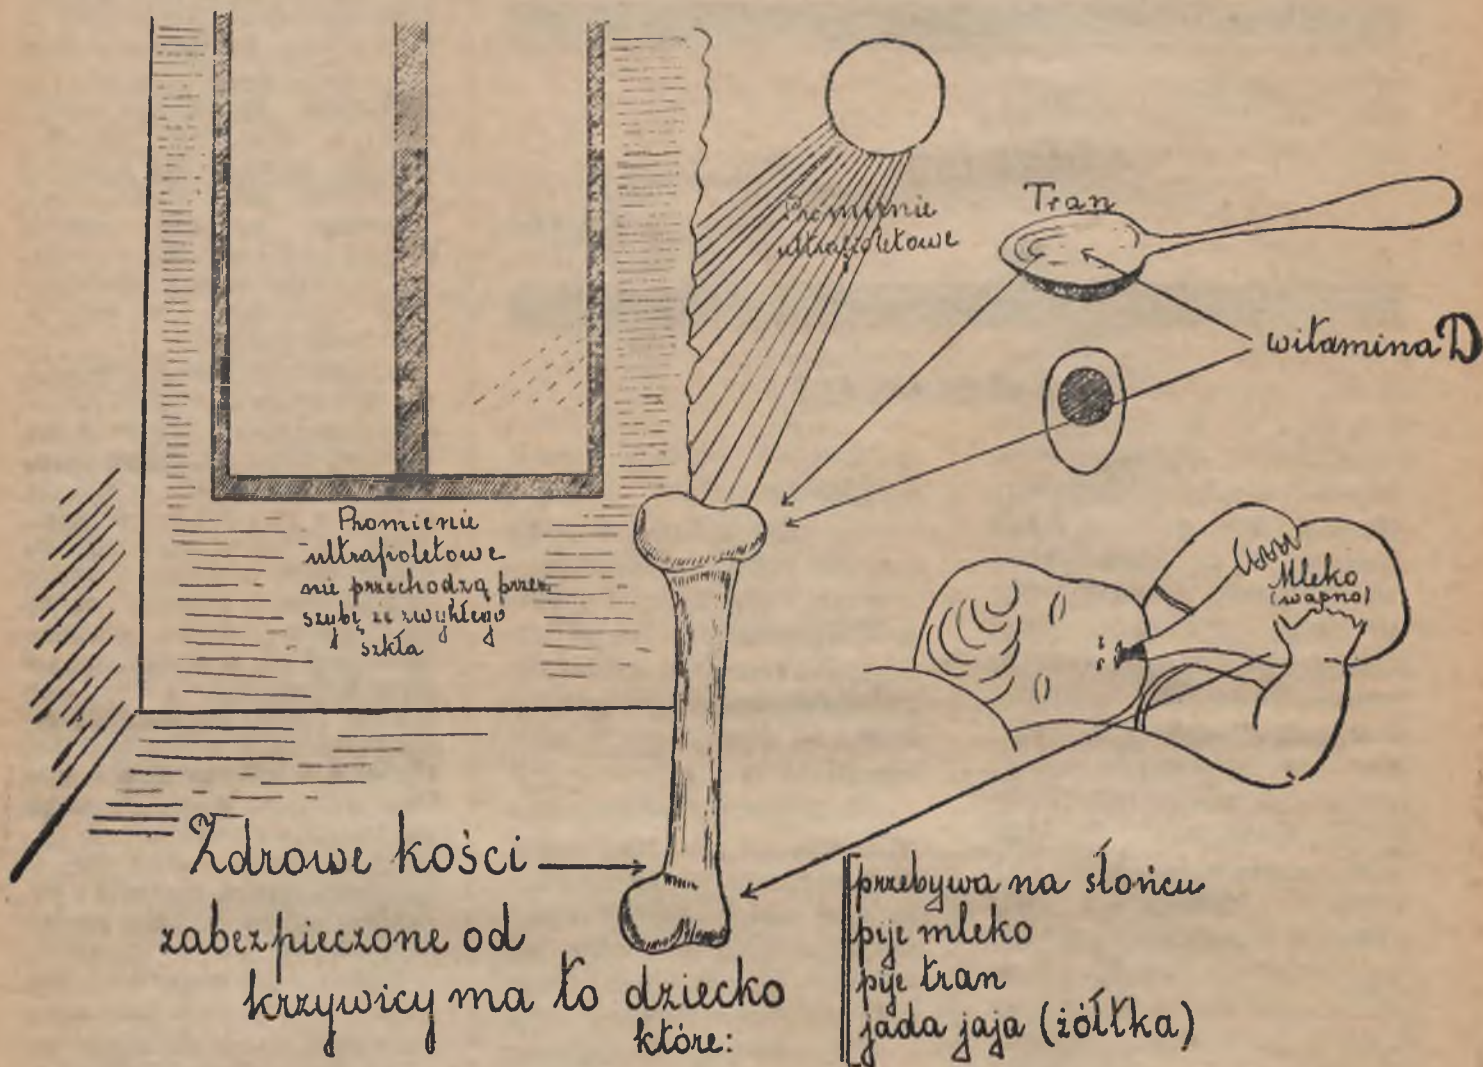 Promienie
ultrafioletowe
Tran
witamina D
Promienie
ultrafioletowe
nie przechodzą przez
szybę ze zwykłego
szkła
Mleko
(wapno)
Zdrowe kości
zabezpieczone od
krzywicy ma to dziecko
które:
przebywa na słońcu
pije mleko
pije tran
jada jaja (żółtka)